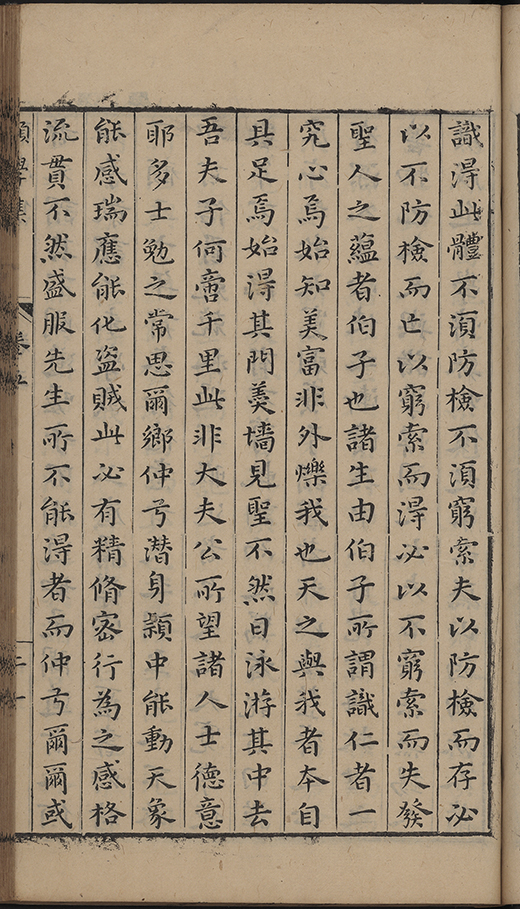 識得此體不湏防檢不湏窮索夫以防檢而存必
以不防檢而亡以窮索而得必以不窮索而失發
聖人之蘊者伯子也諸生由伯子所謂識仁者一
究心焉始知美富非外爍我也天之與我者本自
具足焉始得其門羮墻見聖不然日泳游其中去
吾夫子何啻千里此非大夫公所望諸人士德意
耶多士勉之常思爾鄉仲弓潛身潁中能動天象
能感瑞應能化盜賊此必有精脩密行為之感格
流貫不然盛服先生所不能得者而仲弓爾爾或
願學集
卷五